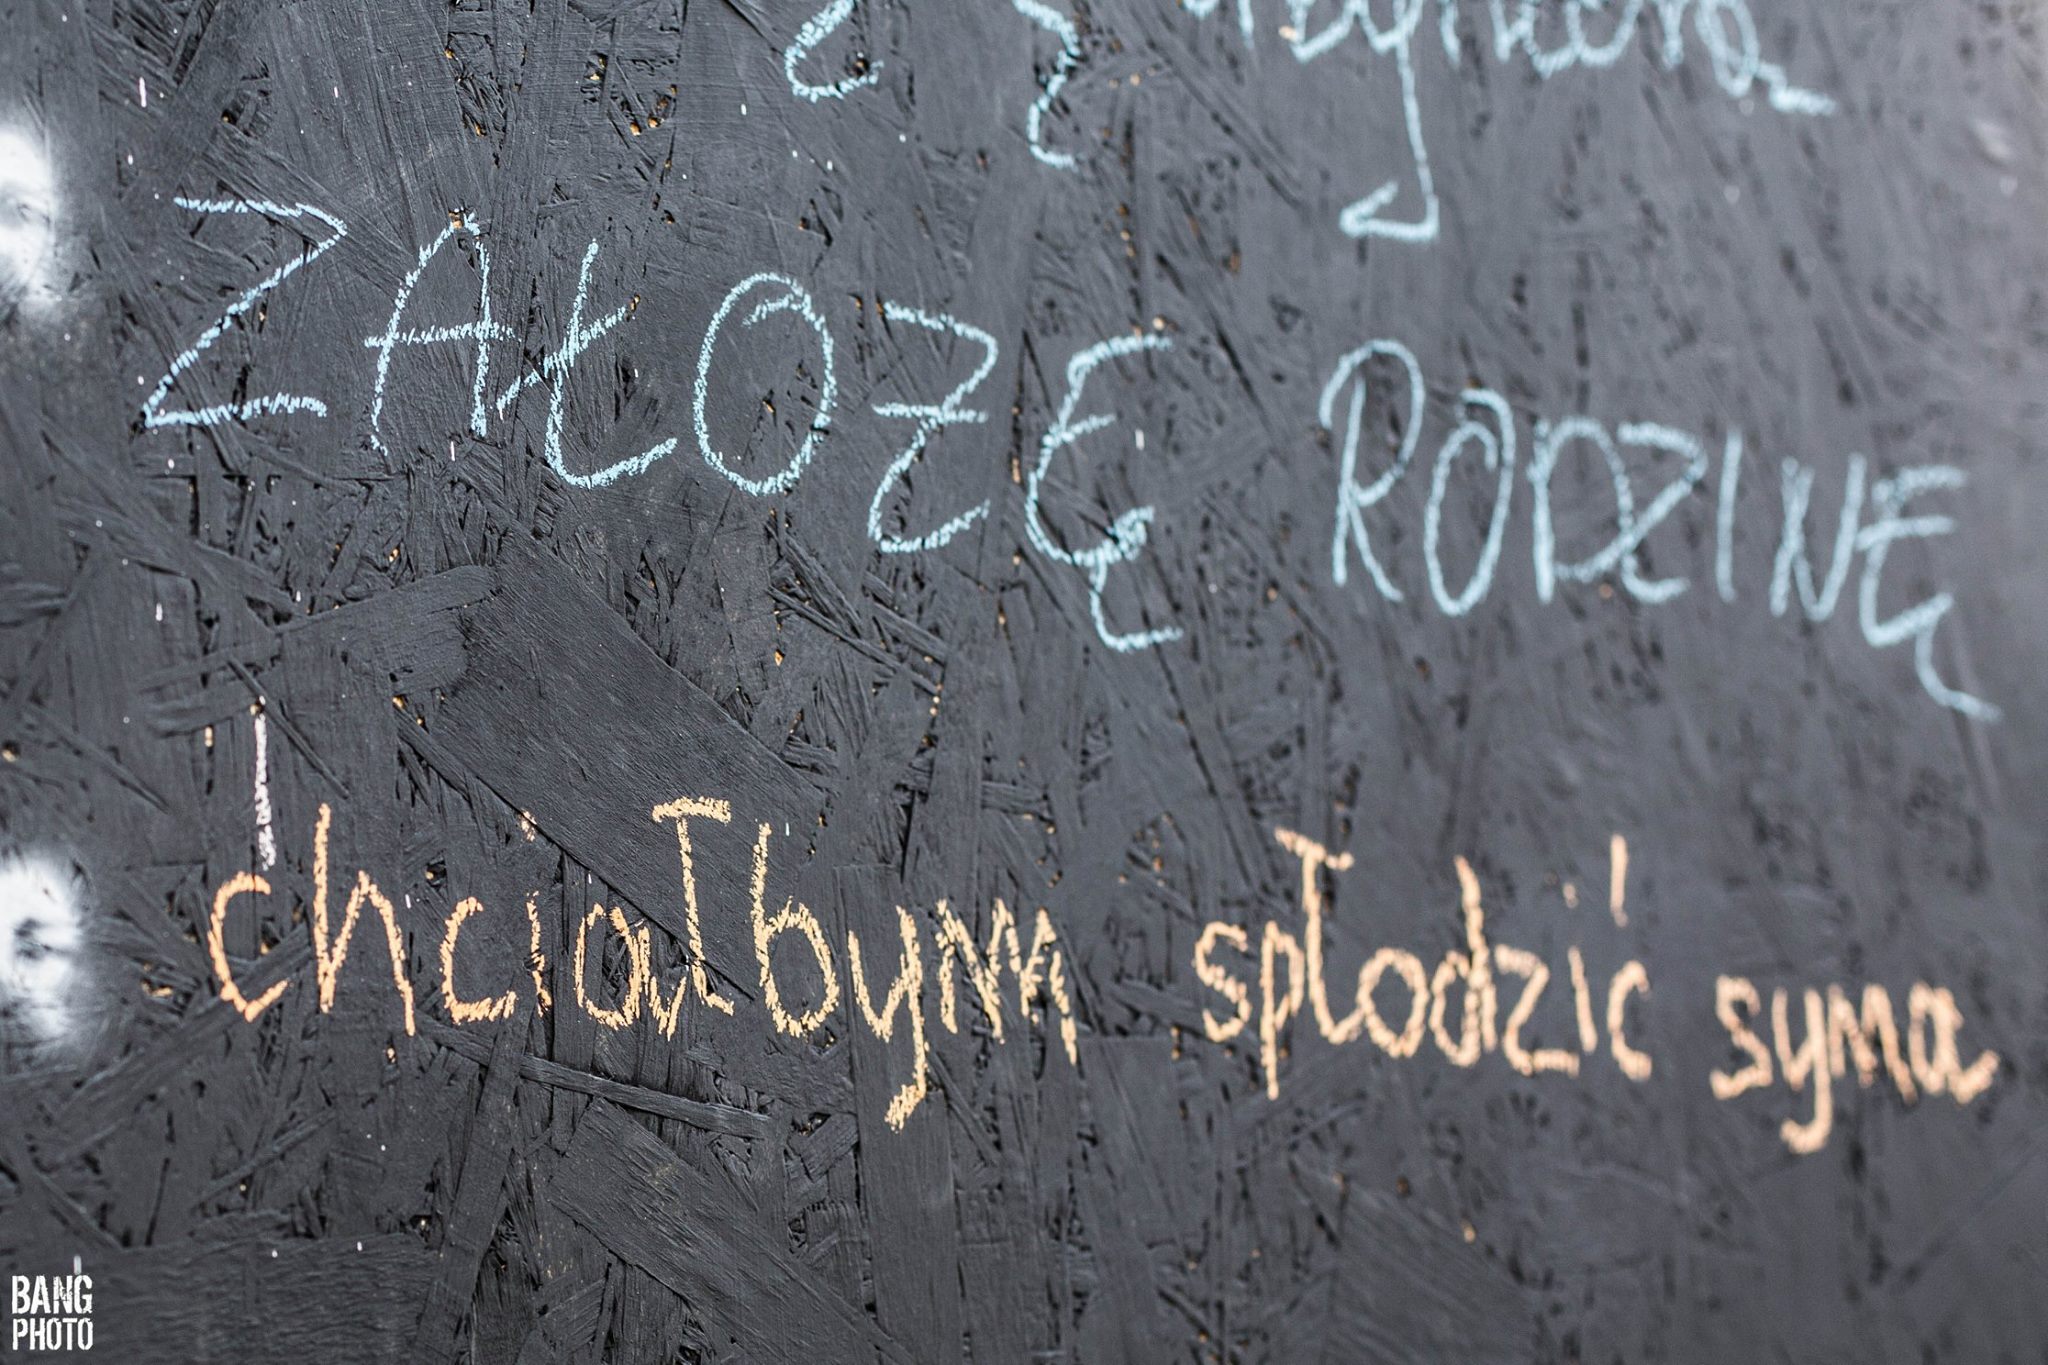 ZAŁOŻĘ RODZINĘ
chciałbym spłodzić syna
BANG
PHOTO